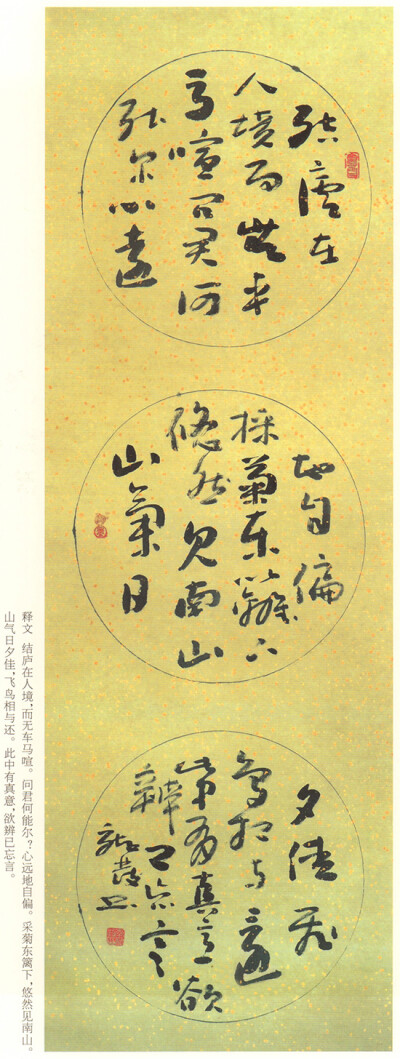 結廬在
人境而無車
馬喧問君何
能尔心遠
地自偏
採菊東籬下
悠然見南山
山氣日
夕佳飛
鳥相与還
此中有真意欲
辨已忘言
释文 结庐在人境,而无车马喧。问君何能尔?心远地自偏。采菊东篱下,悠然见南山。
山气日夕佳,飞鸟相与还。此中有真意,欲辨已忘言。